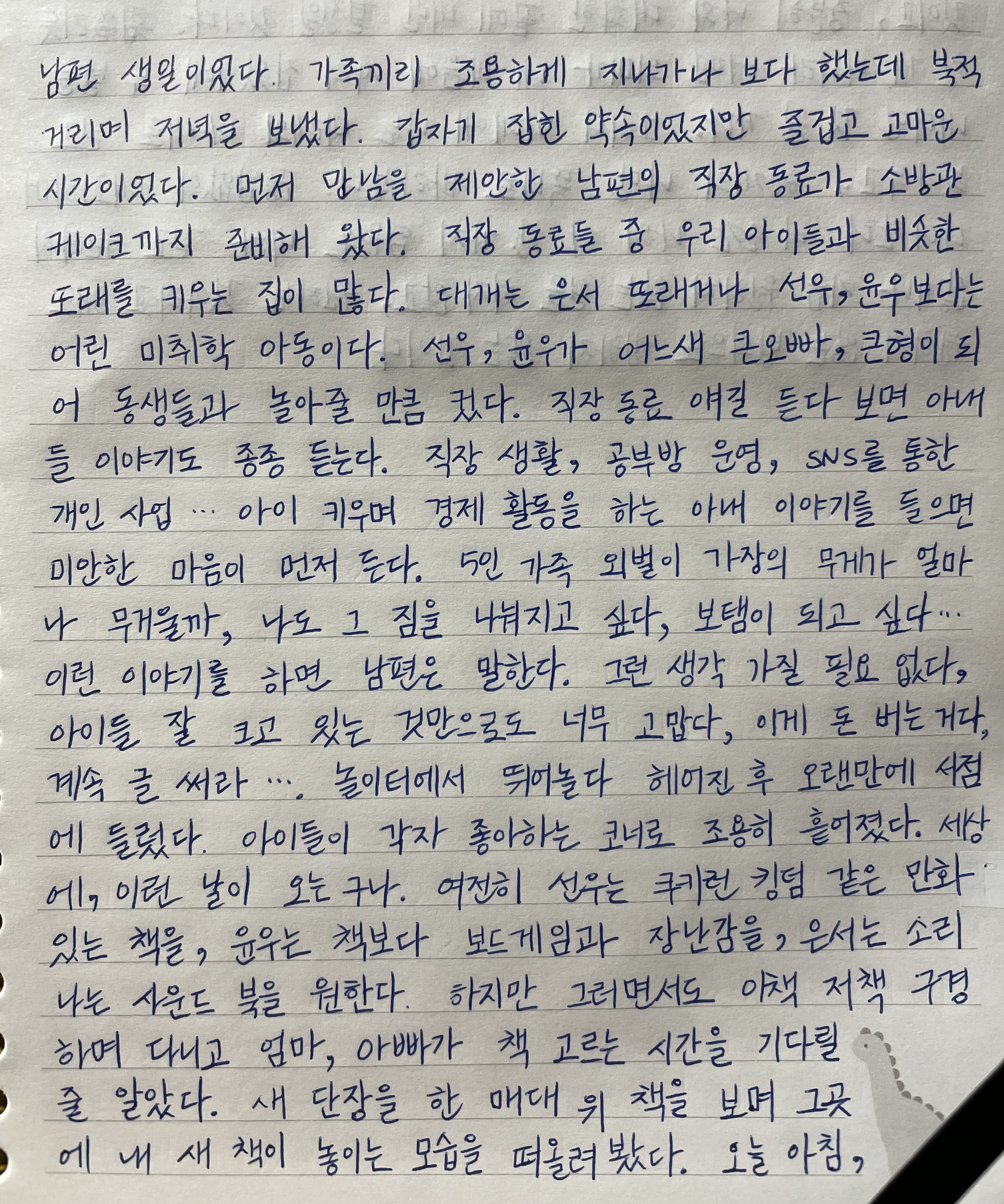 남편 생일이었다. 가족끼리 조용하게 지나가나 보다 했는데 북적
거리며 저녁을 보냈다. 갑자기 잡힌 약속이었지만 즐겁고 고마운
시간이었다. 먼저 만남을 제안한 남편의 직장 동료가 소방관
케이크까지 준비해 왔다. 직장 동료들 중 우리 아이들과 비슷한
또래를 키우는 집이 많다. 대개는 은서 또래거나 선우, 윤우보다는
어린 미취학 아동이다. 선우, 윤우가 어느새 큰오빠, 큰형이 되
어 동생들과 놀아줄 만큼 컸다. 직장 동료 얘길 듣다 보면 아내
들 이야기도 종종 듣는다. 직장 생활, 공부방 운영, SNS를 통한
개인 사업 … 아이 키우며 경제 활동을 하는 아내 이야기를 들으면
미안한 마음이 먼저 든다. 5인 가족 외벌이 가장의 무게가 얼마
나 무거울까, 나도 그 짐을 나눠지고 싶다, 보탬이 되고 싶다…
이런 이야기를 하면 남편은 말한다. 그런 생각 가질 필요 없다,
아이들 잘 크고 있는 것만으로도 너무 고맙다, 이게 돈 버는거다,
계속 글 써라 …. 놀이터에서 뛰어놀다 헤어진 후 오랜만에 서점
에 들렀다. 아이들이 각자 좋아하는 코너로 조용히 흩어졌다. 세상
에, 이런 날이 오는구나. 여전히 선우는 쿠키런 킹덤 같은 만화
있는 책을, 윤우는 책보다 보드게임과 장난감을, 은서는 소리
나는 사운드 북을 원한다. 하지만 그러면서도 이책 저책 구경
하며 다니고 엄마, 아빠가 책 고르는 시간을 기다릴
줄 알았다. 새 단장을 한 매대 위 책을 보며 그곳
에 내 새 책이 놓이는 모습을 떠올려 봤다. 오늘 아침,